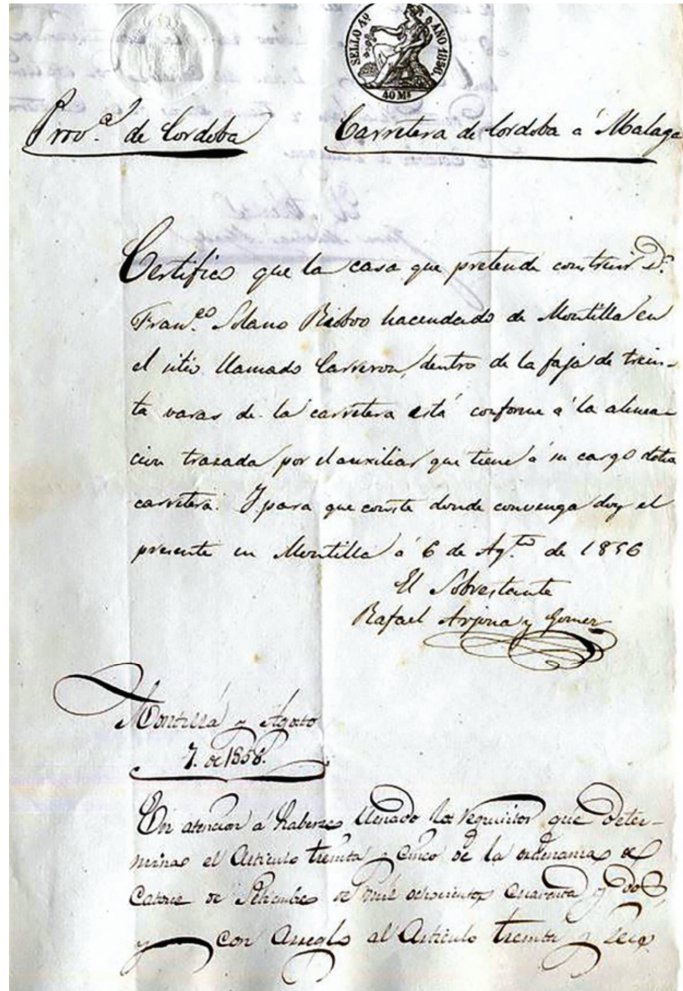 SELLO 4º AÑO 1856.
40 Ms
Prov.ª de Cordoba
Carretera de Cordoba á Malaga
Certifico que la casa que pretende construir D.
Fran.co Solano Rioboo hacendado de Montilla en
el sitio llamado Carreron, dentro de la faja de trein-
ta varas de la carretera está conforme á la alinea-
cion trazada por el auxiliar que tiene á su cargo dicha
carretera. Y para que conste donde convenga doy el
presente en Montilla á 6 de Ag.to de 1856
El Sobrestante
Rafael Arjona y Gomez
Montilla y Agosto
7. de 1856.
En atencion á haberse llenado los requisitos que deter-
minas el Articulo treinta y cinco de la ordenanza de
Catorce de Setiembre de mil ochocientos cuarenta y dos,
y con arreglo al Articulo treinta y seis